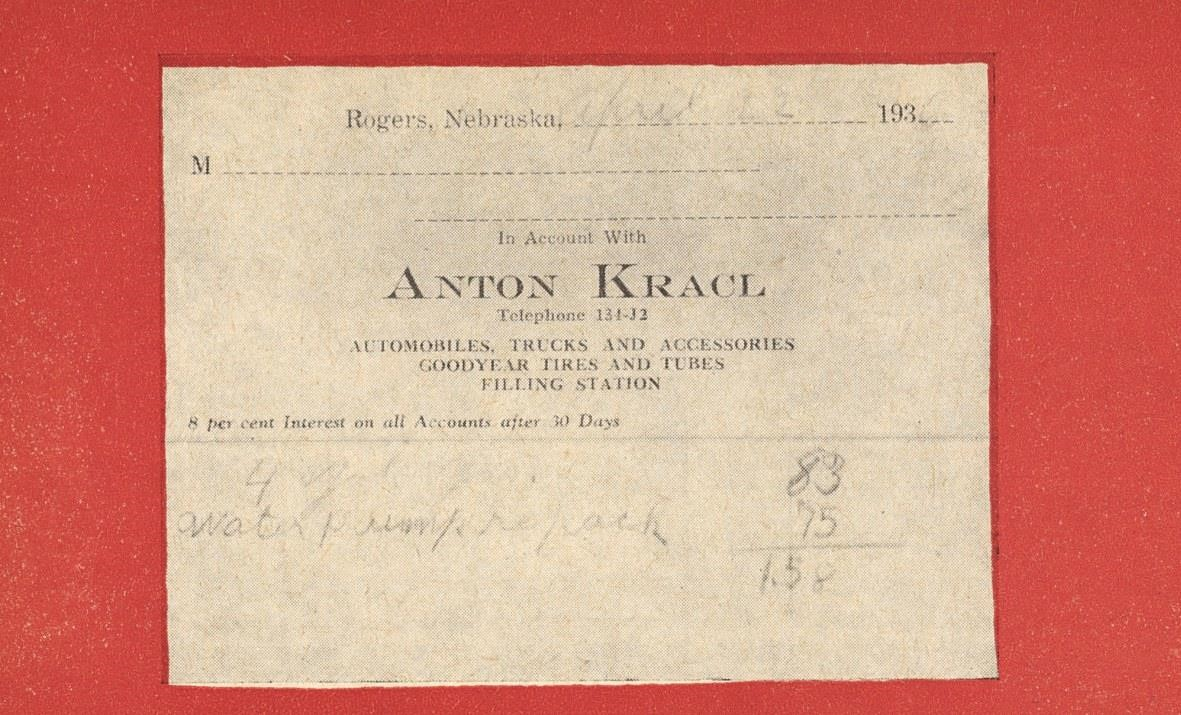 Rogers, Nebraska, April 22 193
M
In Account With
ANTON KRACL
Telephone 134-J2
AUTOMOBILES, TRUCKS AND ACCESSORIES
GOODYEAR TIRES AND TUBES
FILLING STATION
8 per cent Interest on all Accounts after 30 Days
83
Water pump repack 75
1.58